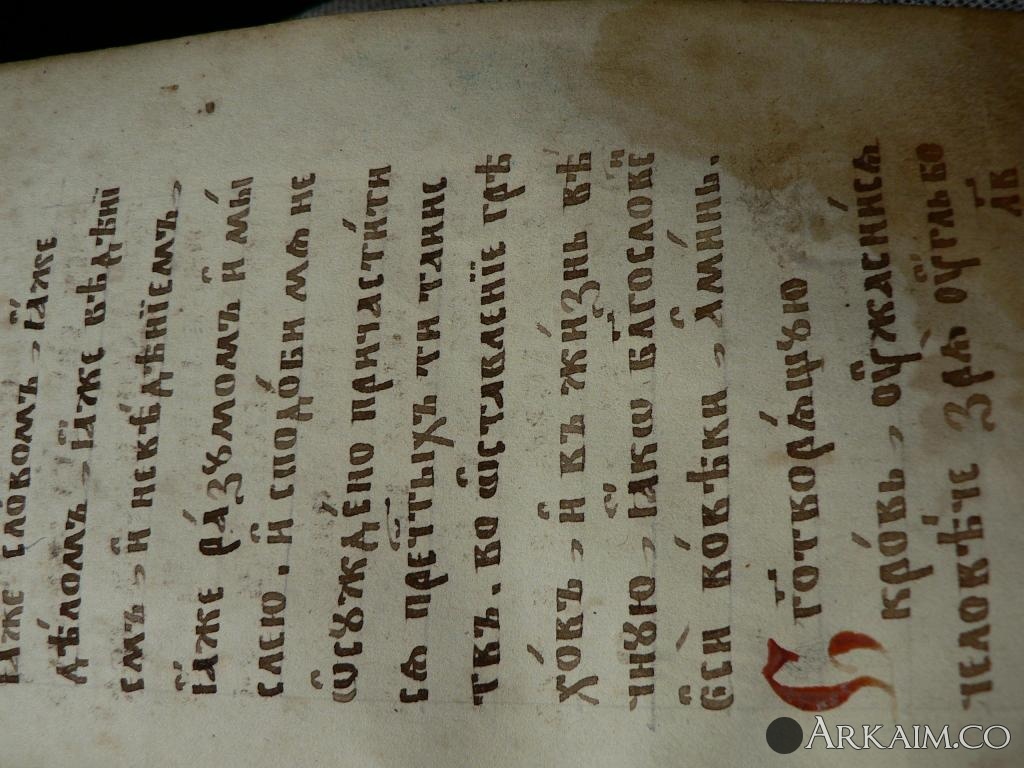 ꙗ҆́же сло́вомъ, ꙗ҆́же
дѣ́ломъ, ꙗ҆́же вѣ́дѣнї
емъ, и҆ невѣ́дѣнїемъ,
ꙗ҆́же ра́зꙋмомъ и҆ мы́
слею. и҆ сподо́би мѧ не
ѡ҆сꙋжде́но причасти́ти
сѧ пречⷭ҇тыхъ ти таинс
твъ. во ѿставленїе грѣ
хо́въ, и҆ въ жи́знь вѣ́
чнꙋю, ꙗ҆́кѡ бл҃гословѐ
є҆сѝ во́вѣки, а҆ми́нь.
Бг҃отворѧ́щꙋю
кро́вь, ᲂу҆жасни́сѧ
человѣ́че зрѧ̀ ᲂу҆́гль бо
ARKAIM.CO